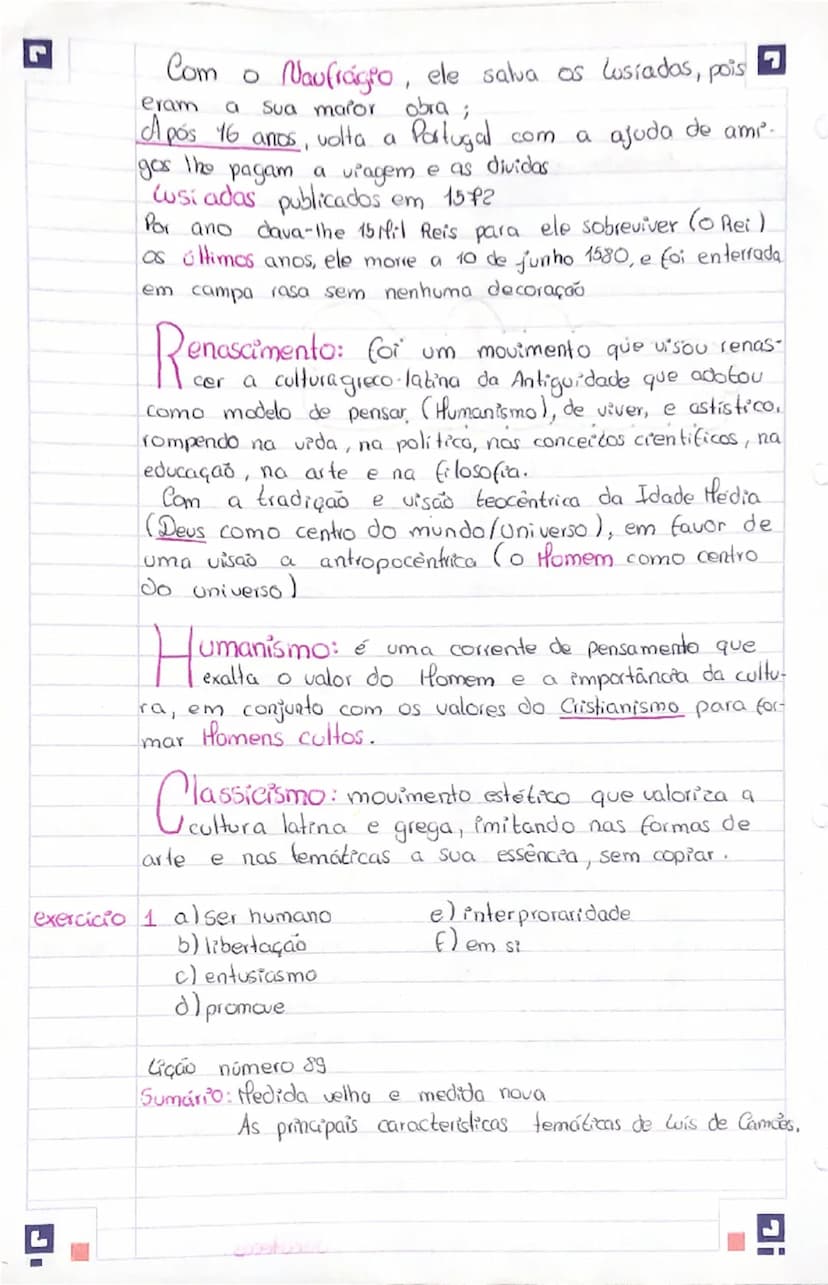 Com o Naufrágio, ele salva os Lusíadas, pois
eram a sua maior obra ;
Após 16 anos, volta a Portugal com a ajuda de ami-
gos lhe pagam a viagem e as dividas
Lusiadas publicados em 1572
Por ano dava-lhe 15 Mil Reis para ele sobreviver (o Rei)
os últimos anos, ele morre a 10 de junho 1580, e foi enterrada
em campa rasa sem nenhuma decoração
Renascimento: foi um movimento que visou renas-
cer a cultura greco-latina da Antiguidade que adotou
como modelo de pensar, (Humanismo), de viver, e astístico,
rompendo na vida, na política, nos conceitos cientificos, na
educação, na arte e na filosofia.
Com a tradição e visão teocêntrica da Idade Média
(Deus como centro do mundo/universo), em favor de
uma visão a antropocêntrica (o Homem como centro
do universo)
Humanismo: é uma corrente de pensamento que
exalta o valor do Homem e a importância da cultu-
ra, em conjunto com os valores do Cristianismo para for-
mar Homens cultos.
Classicismo: movimento estético que valoriza a
cultura latina e grega, imitando nas formas de
arte e nas temáticas a sua essência, sem copiar.
exercicio 1 a) ser humano e) interproraridade
b) libertação f) em si
c) entusiasmo
d) promove
Lição número 89
Sumário: Medida velha e medida nova
As principais caracteristicas temáticas de Luís de Camões.